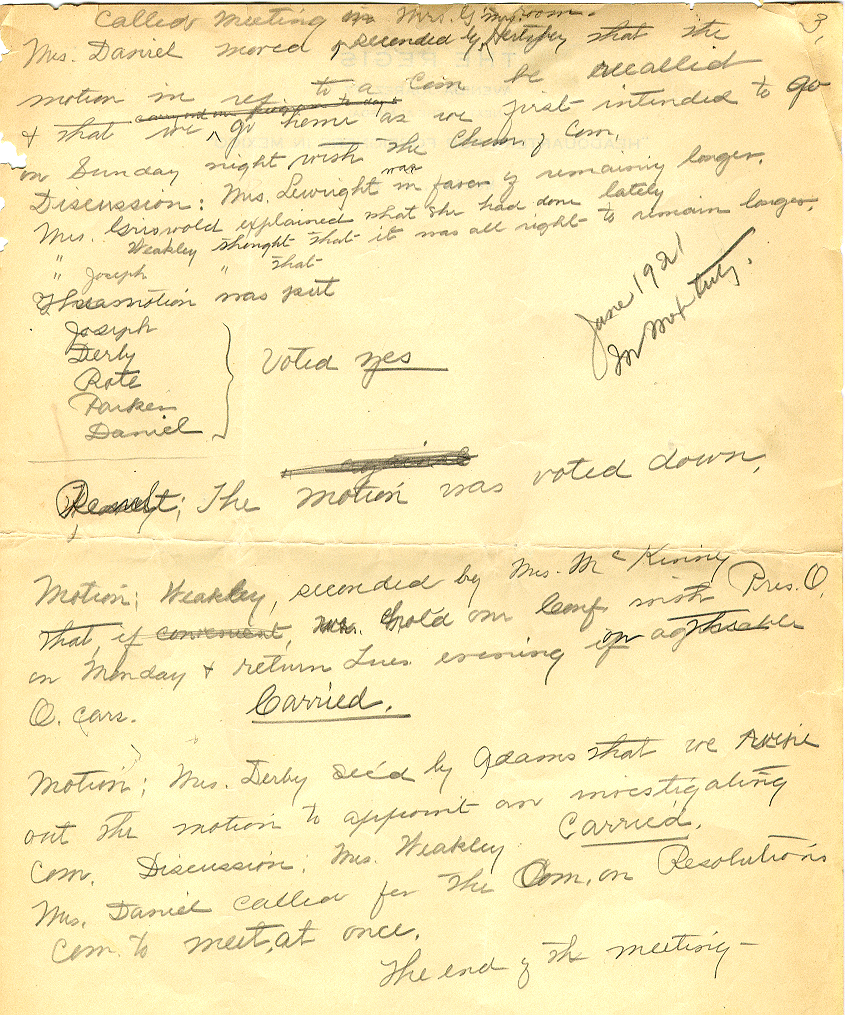 3,
Called Meeting in Mrs. G's room.
Mrs. Daniel moved & seconded by that the
motion in ref to a Com be recalled
carried our program to day
& that we go home as we first intended to go
on Sunday night with the Chan of Com.
was
Discussion: Mrs. Lewright in favor of remaining longer.
Mrs. Griswold explained what she had done lately
" Weakley thought that it was all right to remain longer.
" Joseph " that
The motion was put
June 1921
In
Joseph
Derby
Rote
Parker
Daniel
Voted yes
Result; The motion was voted down,
Motion; Weakley, seconded by Mrs. McKinny
that, if convenient, we hold our Conf with Pres. O.
on Monday & return Tues evening on
O. cars. Carried.
Motion; Mrs. Derby sec'd by Adams that we
out the motion to appoint an investigating
Com. Discussion; Mrs. Weakley. Carried.
Mrs. Daniel called for the Com. on Resolutions
Com. to meet, at once.
The end of the meeting—